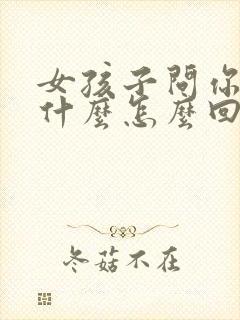 女孩子問你
什麼怎麼回
冬菇不在